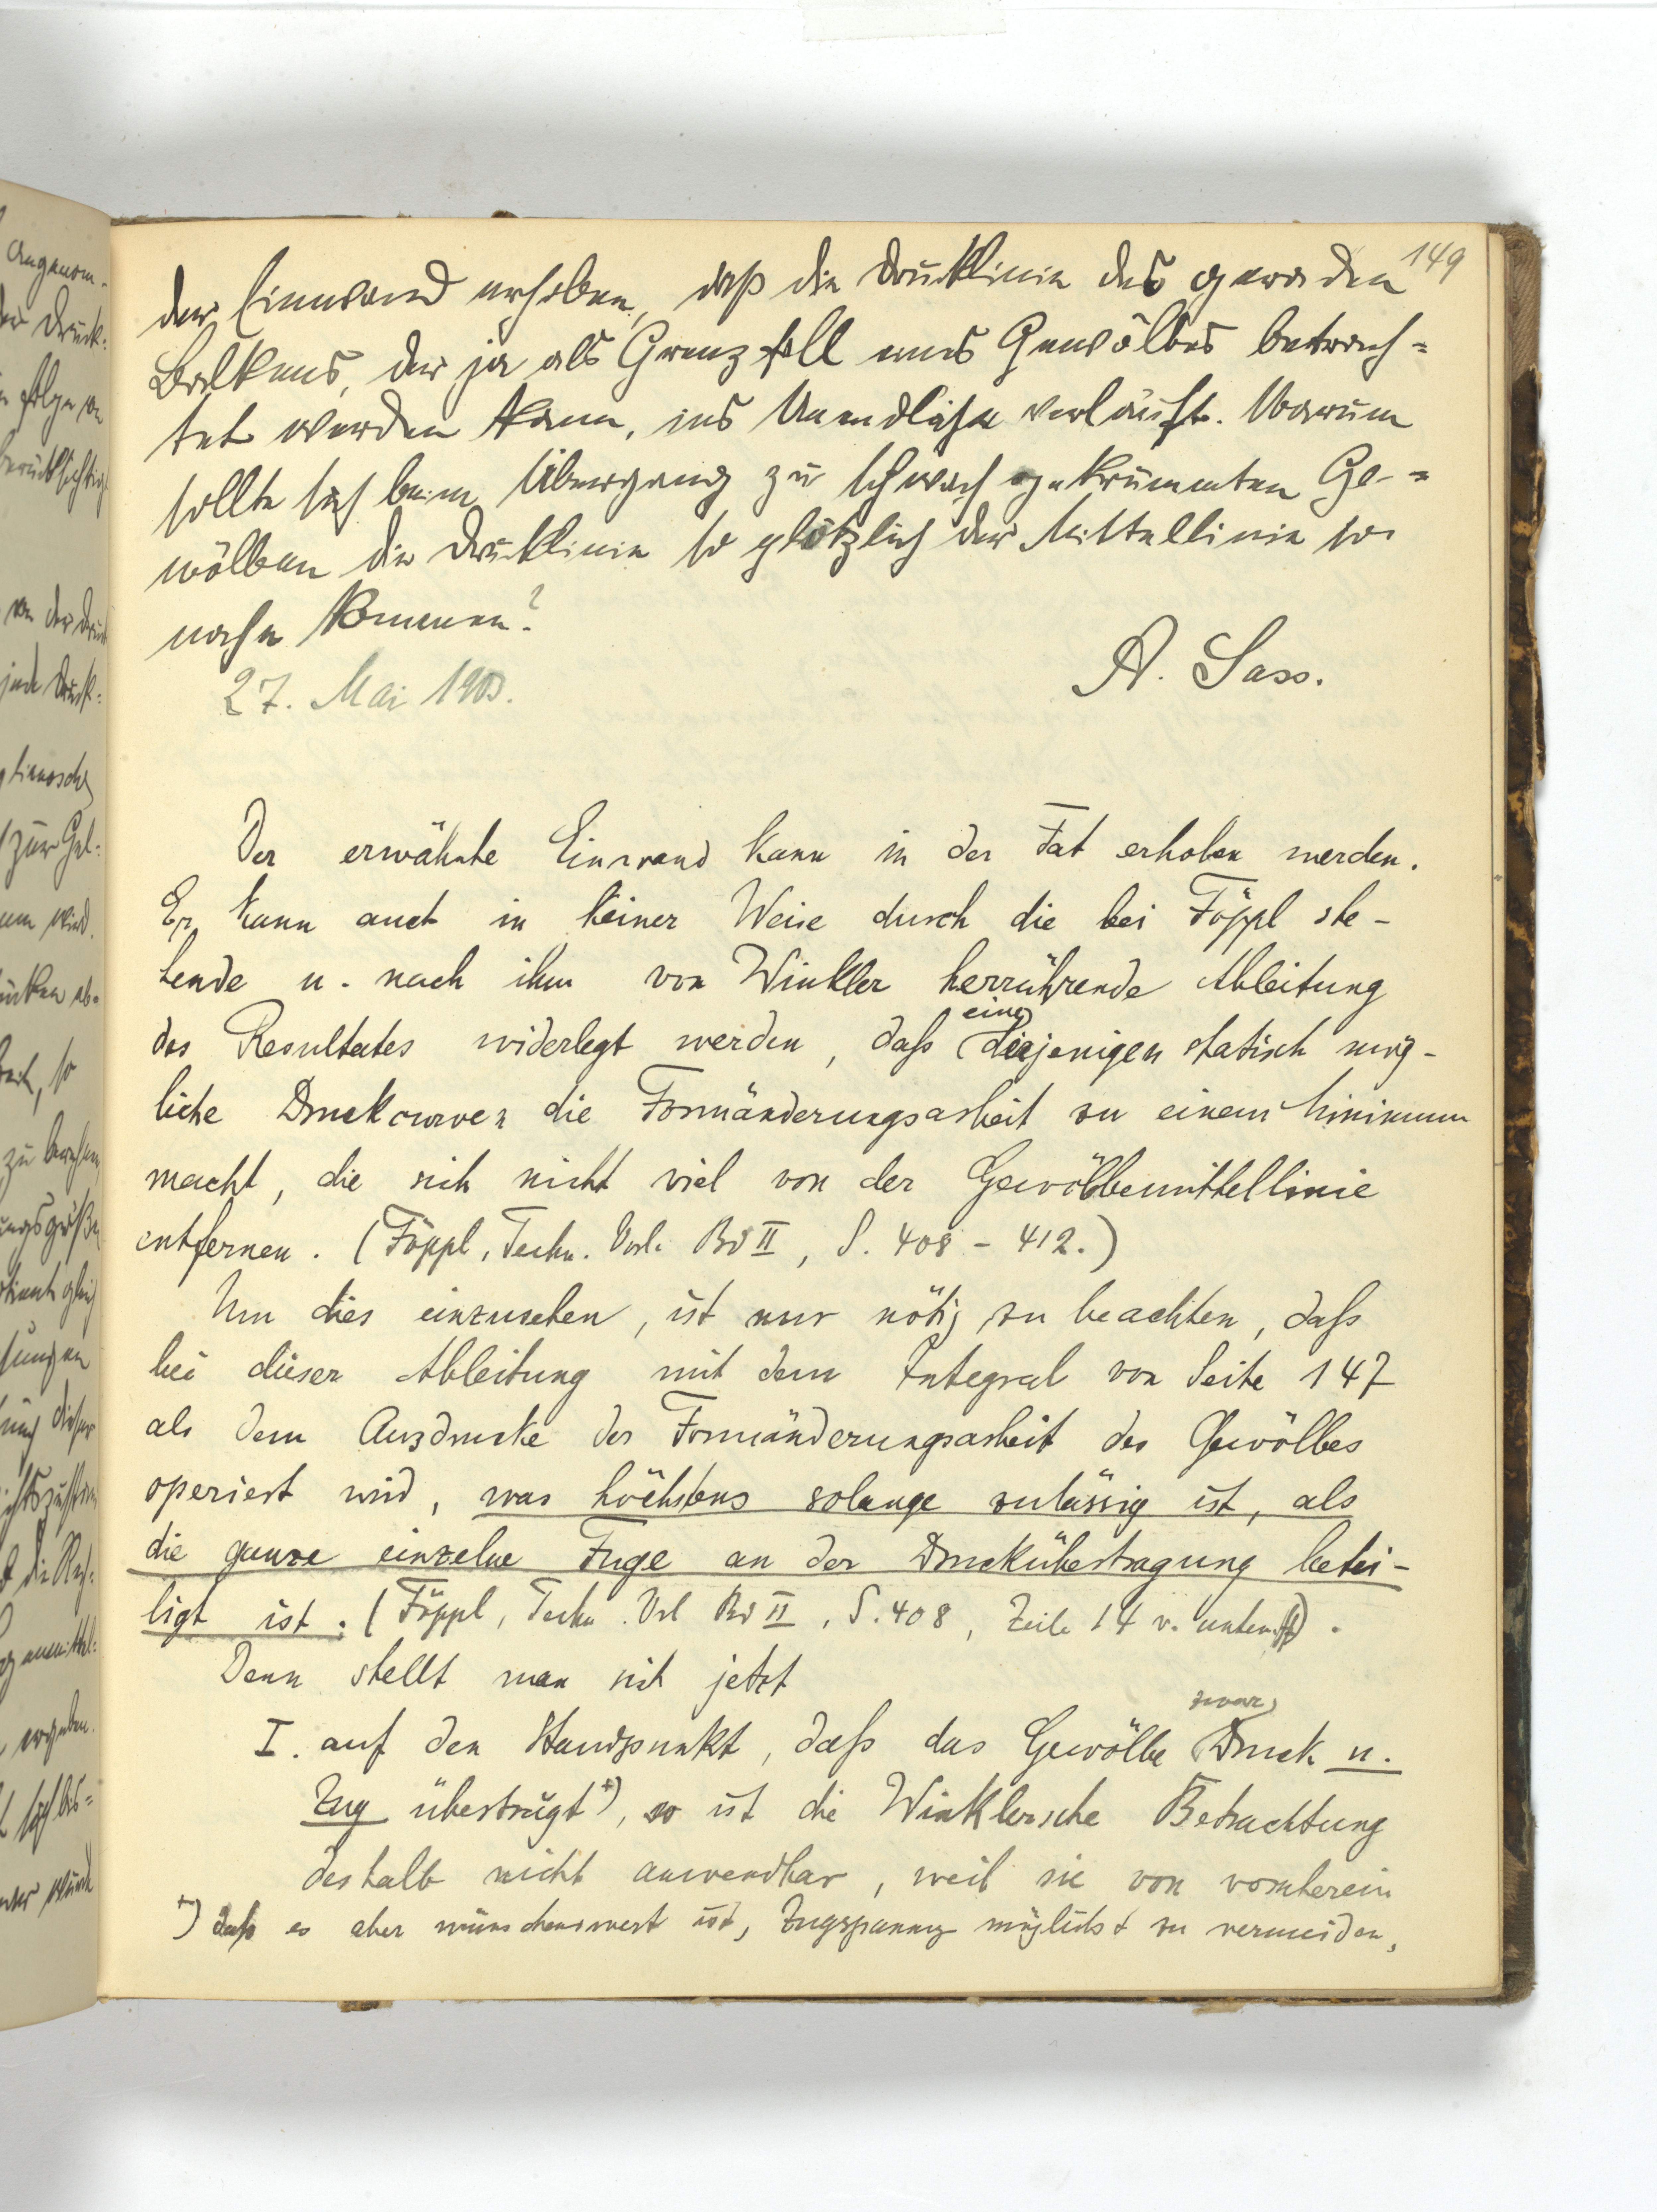 149
der Einwand erhoben, daß die Drucklinie des geraden
Balkens, der ja als Grenzfall eines Gewölbes betrach=
tet werden kann, ins Unendliche verläuft. Warum
sollte sich beim Übergang zu schwach gekrümmten Ge-=
wölben die Drucklinie so plötzlich der Mittellinie so
nahe kommen?
A. Sass.
27. Mai 1903.
Der erwähnte Einwand kann in der Tat erhoben werden.
Er kann auch in keiner Weise durch die bei Föppl ste-
hende u. nach ihm von Winkler herrührende Ableitung
des Resultates widerlegt werden, daſs eine diejenigen statisch mög-
liche Druckcurven die Formänderungsarbeit zu einem Minimum
macht, die sich nicht viel von der Gewölbemittellinie
entfernen. (Föppl, Techn. Vorl. Bd II, S. 408 - 412.)
Um dies einzusehen, ist nur nötig zu beachten, daſs
bei dieser Ableitung mit dem Integral von Seite 147
als dem Ausdrucke der Formänderungsarbeit des Gewölbes
operiert wird, was höchstens solange zulässig ist, als
die ganze einzelne Fuge an der Druckübertragung betei-
ligt ist. (Föppl, Techn. Vorl Bd II, S. 408, Zeile 14 v. unten ff).
Denn stellt man sich jetzt
I. auf den Standpunkt, daſs das Gewölbe zwar Druck u.
Zug überträgt +), so ist die Winklersche Betrachtung
deshalb nicht anwendbar, weil sie von vornherein
+) daſs es aber wünschenswert ist, Zugspannung möglichst zu vermeiden,